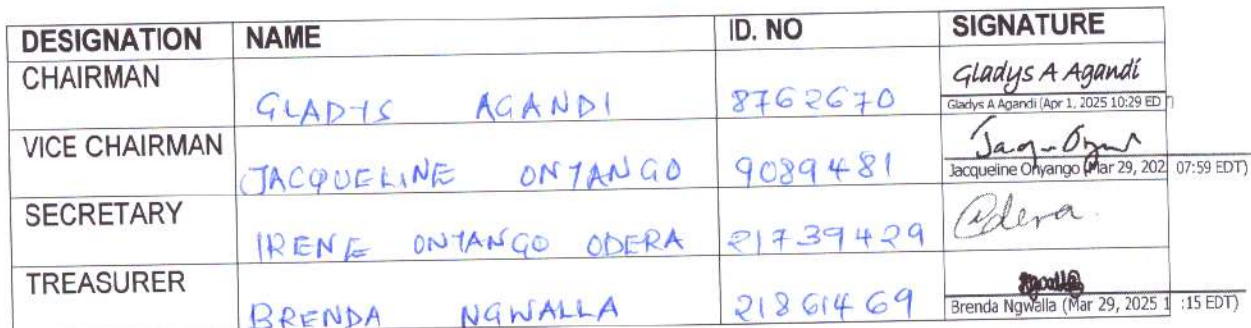 DESIGNATION NAME ID. NO SIGNATURE
CHAIRMAN GLADYS AGANDI 8762670 Gladys A Agandi
Gladys A Agandi (Apr 1, 2025 10:29 ED
VICE CHAIRMAN JACQUELINE ONYANGO 9089481
Jacqueline Onyango (Mar 29, 202 07:59 EDT)
SECRETARY IRENE ONYANGO ODERA 21739429 Odera
TREASURER BRENDA NGWALLA 21861469
Brenda Ngwalla (Mar 29, 2025 1 :15 EDT)